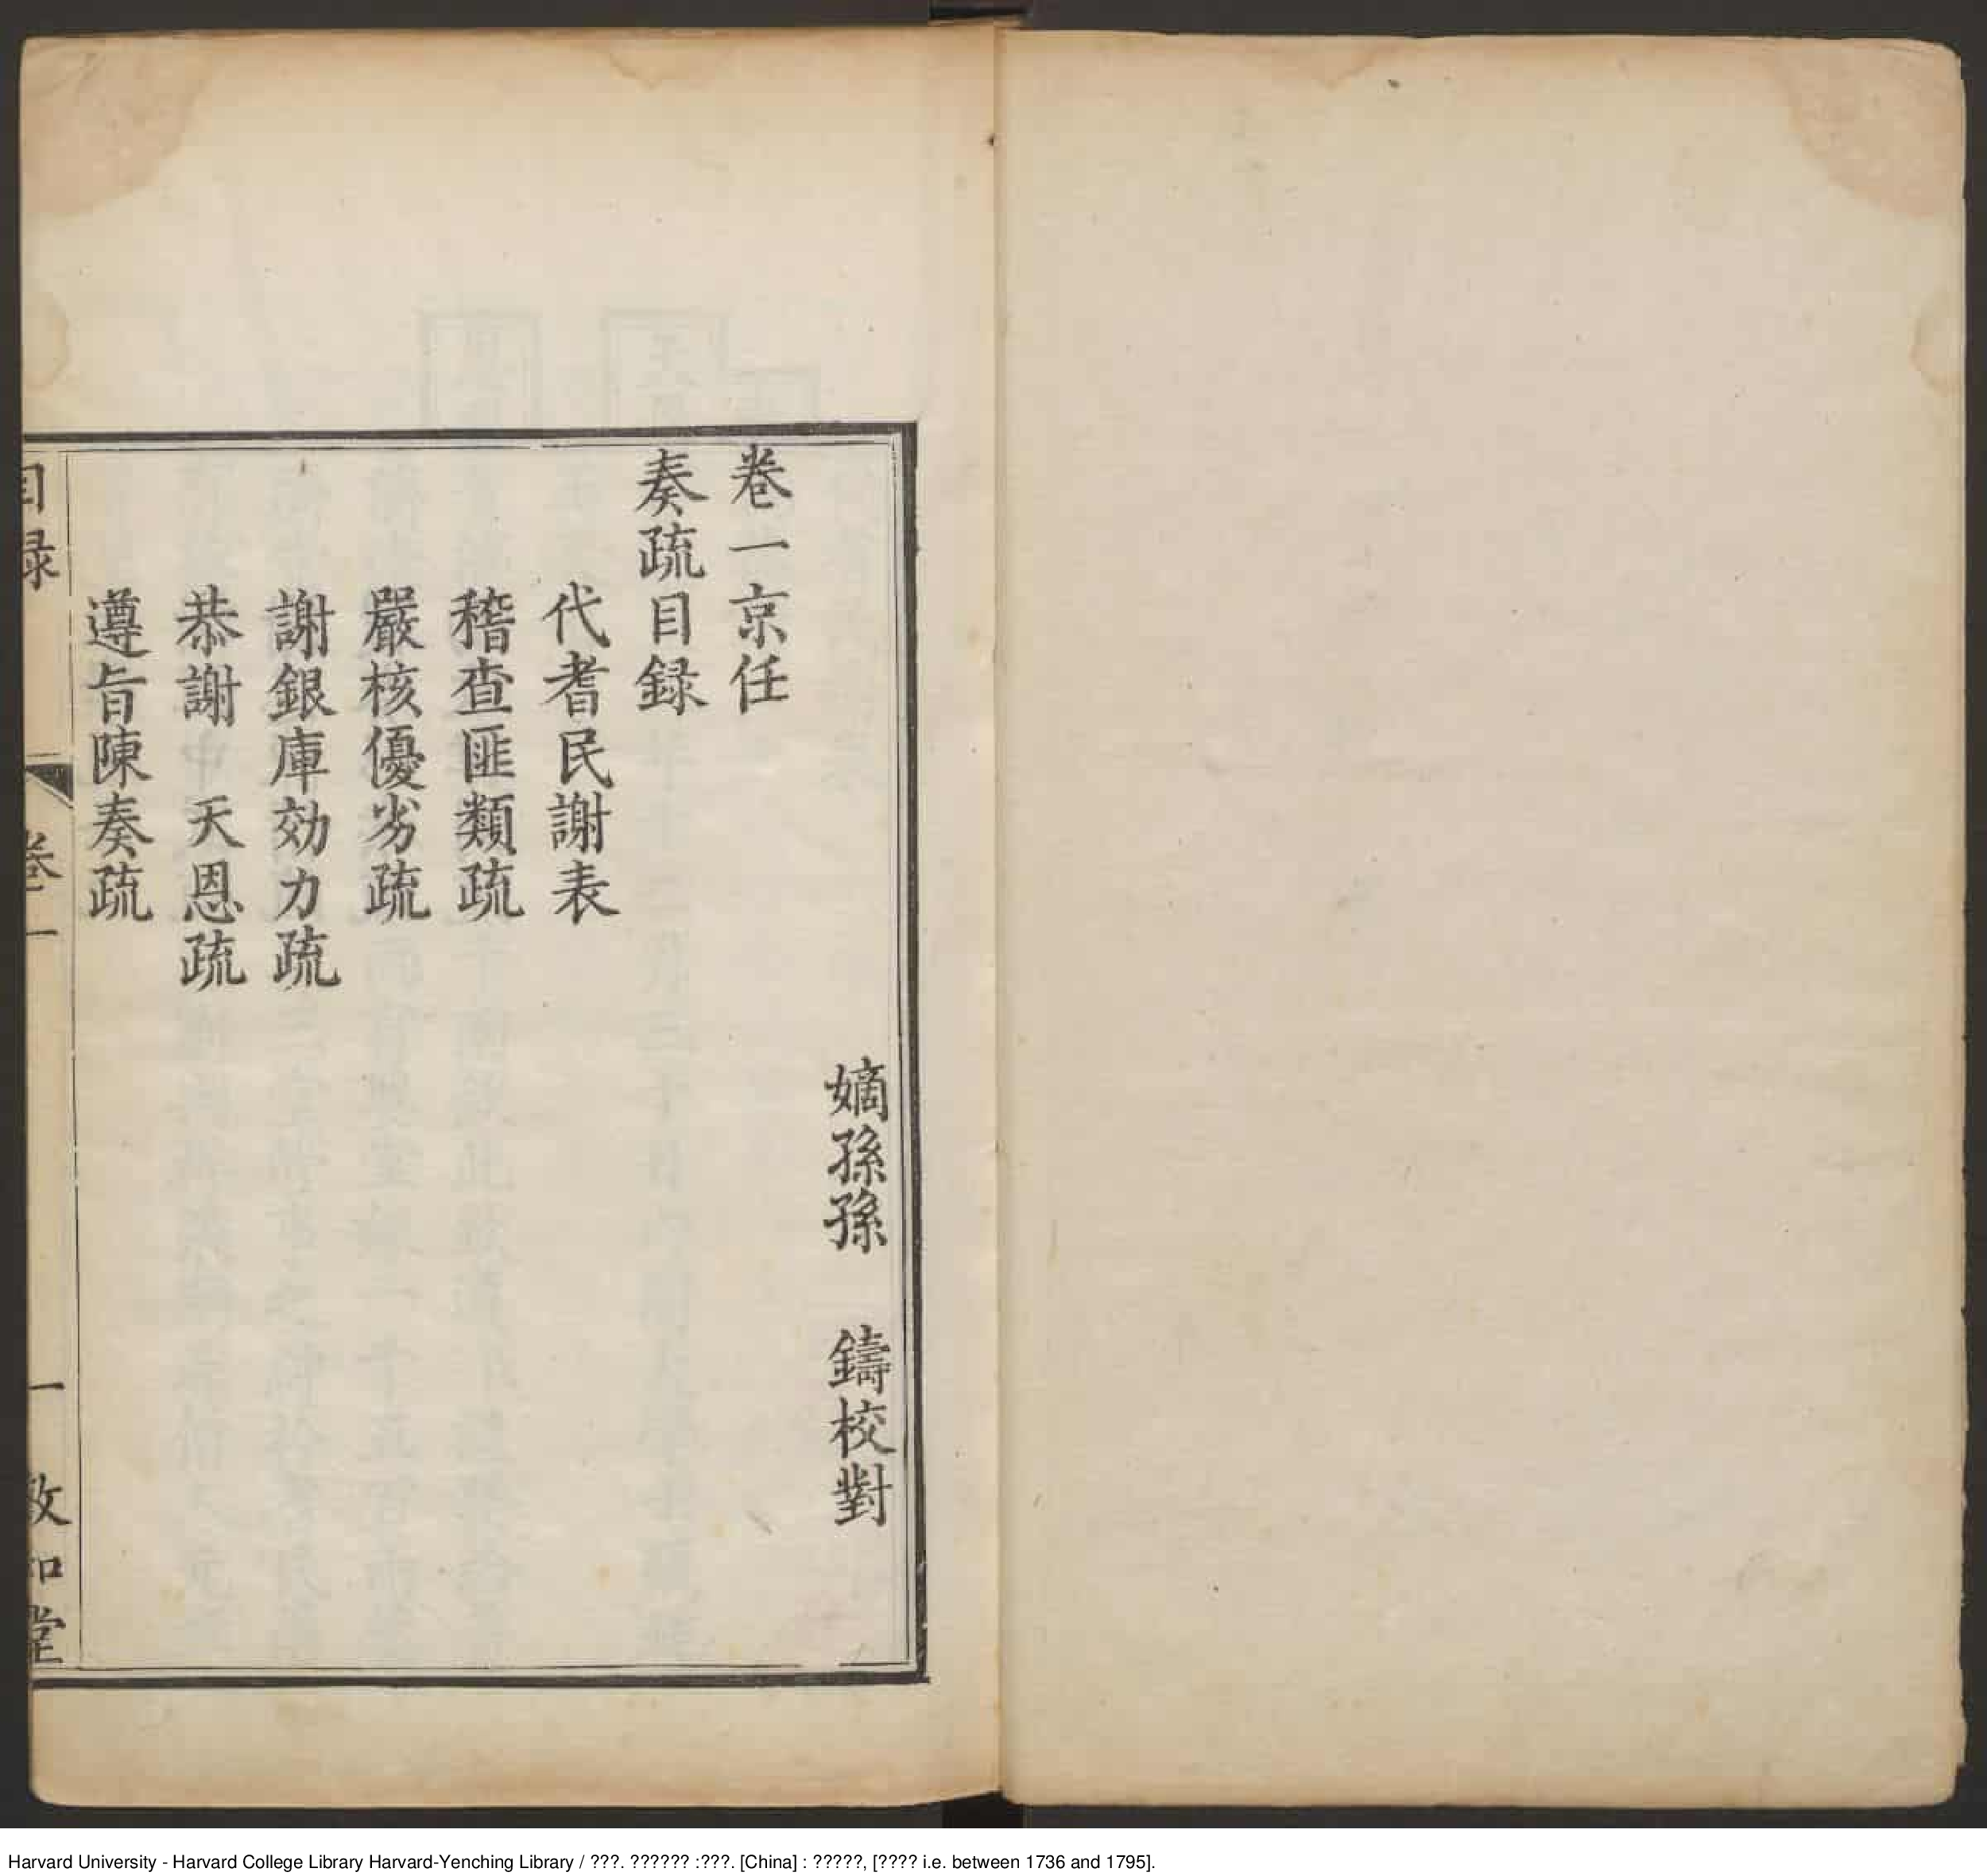 嫡孫孫　鑄校對
卷一京任
奏疏目録
代耆民謝表
稽查匪類疏
嚴核優劣疏
謝銀庫効力疏
恭謝　天恩疏
遵旨陳奏疏
目録　卷一　一　敦和堂
Harvard University - Harvard College Library Harvard-Yenching Library / ???. ?????? :???. [China] : ?????, [???? i.e. between 1736 and 1795].